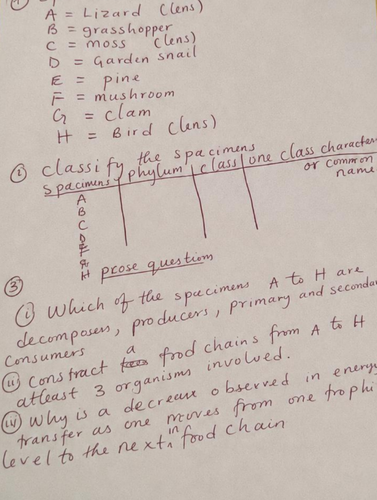 ①
A = Lizard (lens)
B = grasshopper
C = moss (lens)
D = Garden snail
E = pine
F = mushroom
G = clam
H = Bird (lens)
② classify the spacimens
spacimens phylum class one class character
or common
name
A
B
C
D
E
F
G
H
prose questions
③
(i) Which of the specimens A to H are
decomposers, producers, primary and seconda
consumers
(ii) Constract a food chains from A to H
atleast 3 organisms involved.
(iv) Why is a decrease observed in energy
transfer as one moves from one trophi
level to the next in food chain